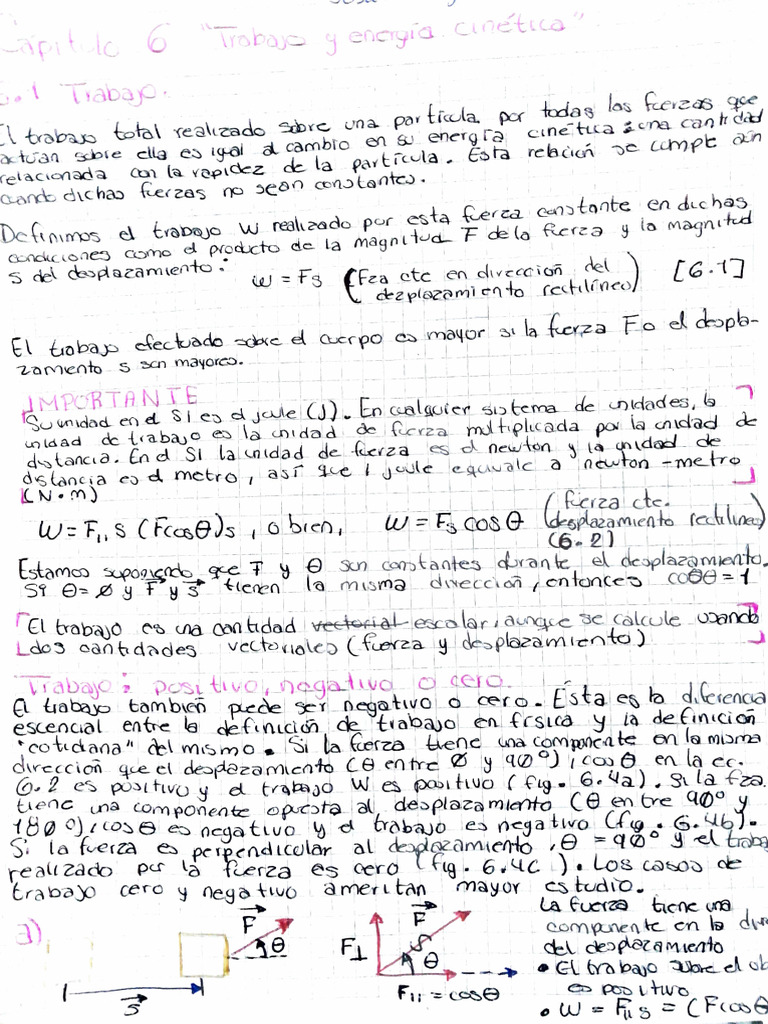 Capitulo 6 "Trabajo y energía cinética"
6.1 Trabajo.
El trabajo total realizado sobre una partícula por todas las fuerzas que
actúan sobre ella es igual al cambio en su energía cinética: una cantidad
relacionada con la rapidez de la partícula. Esta relación se cumple aún
cuando dichas fuerzas no sean constantes.
Definimos el trabajo W realizado por esta fuerza constante en dichas
condiciones como el producto de la magnitud F de la fuerza y la magnitud
s del desplazamiento:
W = Fs (Fza cte en dirección del desplazamiento rectilíneo) [6.1]
El trabajo efectuado sobre el cuerpo es mayor si la fuerza F o el despla-
zamiento s son mayores.
IMPORTANTE
Su unidad en el SI es el joule (J). En cualquier sistema de unidades, la
unidad de trabajo es la unidad de fuerza multiplicada por la unidad de
distancia. En el SI la unidad de fuerza es el newton y la unidad de
distancia es el metro, así que 1 joule equivale a newton-metro
(N·m)
W = F₁₁s (Fcosθ)s, o bien, W = Fs cosθ (fuerza cte. desplazamiento rectilíneo)
(6.2)
Estamos suponiendo que F y θ son constantes durante el desplazamiento.
Si θ=ø y F⃗ y s⃗ tienen la misma dirección, entonces cosθ=1
El trabajo es una cantidad vectorial escalar, aunque se calcule usando
dos cantidades vectoriales (fuerza y desplazamiento)
Trabajo: positivo, negativo o cero.
El trabajo también puede ser negativo o cero. Ésta es la diferencia
escencial entre la definición de trabajo en física y la definición
"cotidana" del mismo. Si la fuerza tiene una componente en la misma
dirección que el desplazamiento (θ entre ø y 90°), cosθ en la ec.
6.2 es positivo y el trabajo W es positivo (fig. 6.4a). Si la fza.
tiene una componente opuesta al desplazamiento (θ entre 90° y
180°), cosθ es negativo y el trabajo es negativo (fig. 6.4b).
Si la fuerza es perpendicular al desplazamiento, θ = 90° y el traba
realizado por la fuerza es cero (fig. 6.4c). Los casos de
trabajo cero y negativo ameritan mayor estudio.
a)
F⃗
θ
s⃗
F⊥
F⃗
θ
F₁₁ = cosθ
La fuerza tiene una
componente en la dire
del desplazamiento
• El trabajo sobre el ob
es positivo
• W = F₁₁s = (Fcosθ